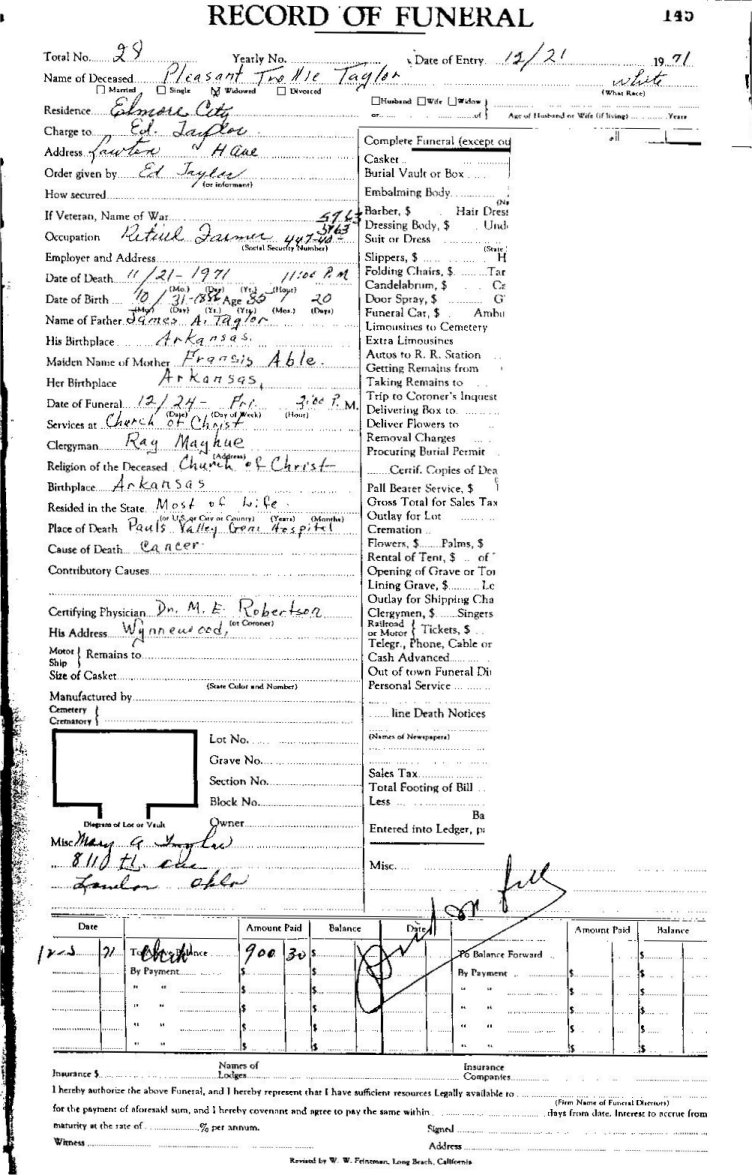 RECORD OF FUNERAL 145
Total No. 28 Yearly No. Date of Entry 12/21 1971
Name of Deceased Pleasant Taylor white
Married Single Widowed Divorced (What Race)
Residence Elmore City Husband Wife Widow or of Age of Husband or Wife (if living) Years
Charge to Ed. Taylor
Address Lawton H ave
Order given by Ed Taylor
(or informant)
How secured
If Veteran, Name of War
Occupation Retired Farmer 447-40- 5763
(Social Security Number)
Employer and Address
Date of Death 11/21-1971 11:00 P.M
(Mo.) (Day) (Yr.) (Hour)
Date of Birth 10/31-1886 Age 85 1 20
(Mo.) (Day) (Yr.) (Yrs.) (Mos.) (Days)
Name of Father James A. Taylor
His Birthplace Arkansas.
Maiden Name of Mother Fransis Able.
Her Birthplace Arkansas,
Date of Funeral 12/24- Fri. 2:00 P. M.
(Date) (Day of Week) (Hour)
Services at Church of Christ
Clergyman Ray Mayhue
(Address)
Religion of the Deceased Church of Christ
Birthplace Arkansas
Resided in the State Most of Life.
(or U.S. or City or County) (Years) (Months)
Place of Death Pauls Valley Genr Hospitel
Cause of Death Cancer
Contributory Causes
Certifying Physician Dr. M. E. Robertson
(or Coroner)
His Address Wynnewood,
Motor Ship } Remains to
Size of Casket
(State Color and Number)
Manufactured by
Cemetery
Crematory
Lot No.
Grave No.
Section No.
Block No.
Diagram of Lot or Vault Owner
Misc Mary A Taylor
811
Lawton Okla
Complete Funeral (except ou all
Casket
Burial Vault or Box
Embalming Body
(Na
Barber, $ Hair Dress
Dressing Body, $ Unde
Suit or Dress
(State
Slippers, $ H
Folding Chairs, $ Tar
Candelabrum, $ Ca
Door Spray, $ G
Funeral Car, $ Ambu
Limousines to Cemetery
Extra Limousines
Autos to R. R. Station
Getting Remains from
Taking Remains to
Trip to Coroner's Inquest
Delivering Box to
Deliver Flowers to
Removal Charges
Procuring Burial Permit
Certif. Copies of Dea
Pall Bearer Service, $
Gross Total for Sales Tax
Outlay for Lot
Cremation
Flowers, $ Palms, $
Rental of Tent, $ of
Opening of Grave or Tom
Lining Grave, $ Le
Outlay for Shipping Cha
Clergymen, $ Singers
Railroad or Motor { Tickets, $
Telegr., Phone, Cable or
Cash Advanced
Out of town Funeral Dir
Personal Service
line Death Notices
(Names of Newspapers)
Sales Tax
Total Footing of Bill
Less
Ba
Entered into Ledger, pa
Misc.
Paid in full
Date Amount Paid Balance Date Amount Paid Balance
12-5 71 To Above Balance 900 30 $ To Balance Forward $
By Payment $ $ By Payment $ $
" " $ $ " " $ $
" " $ $ " " $ $
" " $ $ " " $ $
" " $ $ " " $ $
Insurance $ Names of Lodges Insurance Companies
I hereby authorize the above Funeral, and I hereby represent that I have sufficient resources Legally available to
(Firm Name of Funeral Directors)
for the payment of aforesaid sum, and I hereby covenant and agree to pay the same within days from date. Interest to accrue from
maturity at the rate of % per annum. Signed
Witness Address
Revised by W. W. Feineman, Long Beach, California